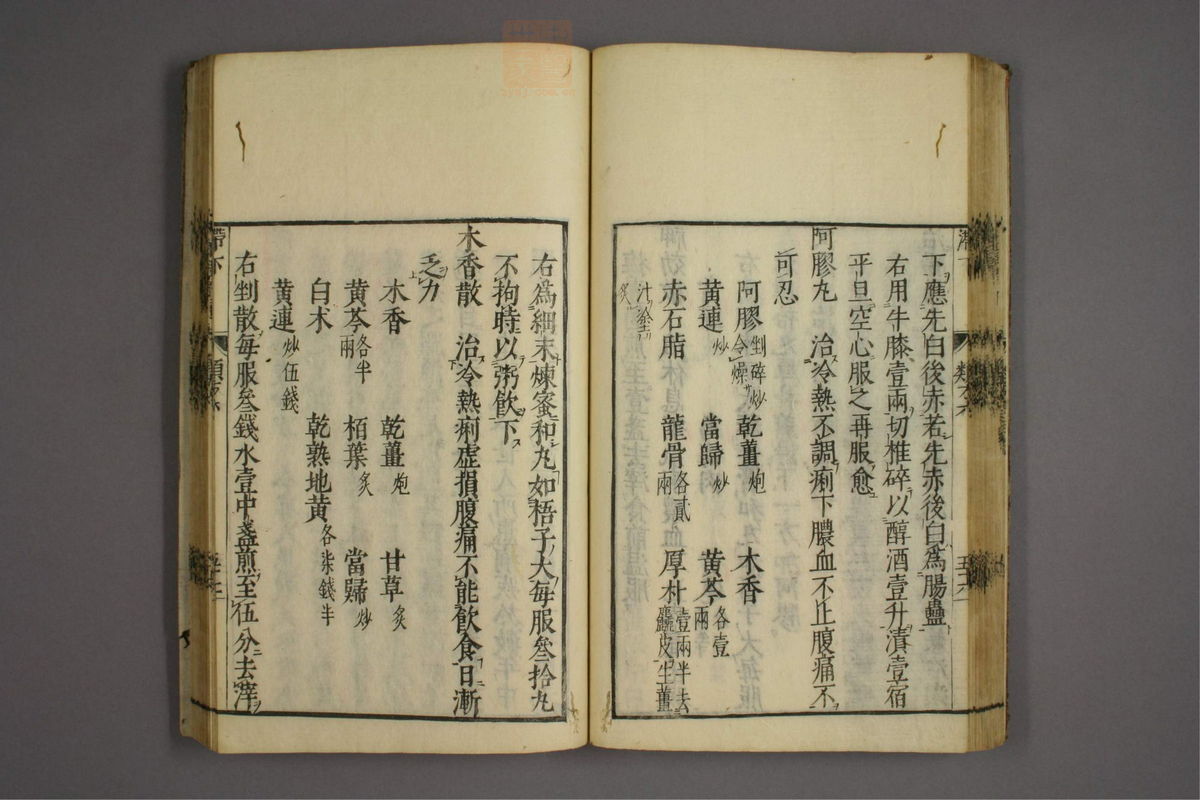 下應先白後赤若先赤後白爲腸蠱
右用牛膝壹兩切椎碎以醇酒壹升漬壹宿
平旦空心服之再服愈
阿膠丸 治冷熱不調痢下膿血不止腹痛不
可忍
阿膠剉碎炒令燥 乾薑炮 木香
黄連炒 當歸炒 黄芩各壹兩
赤石脂 龍骨各貳兩 厚朴壹兩半去麤皮生薑
汁塗炙
右爲細末煉蜜和丸如梧子大每服叄拾丸
不拘時以粥飲下
木香散 治冷熱痢虛損腹痛不能飲食日漸
乏力
木香 乾薑炮 甘草炙
黄芩各半兩 栢葉炙 當歸炒
白术 乾熟地黄各柒錢半
黄連炒伍錢
右剉散每服叄錢水壹中盞煎至伍分去滓
帶下